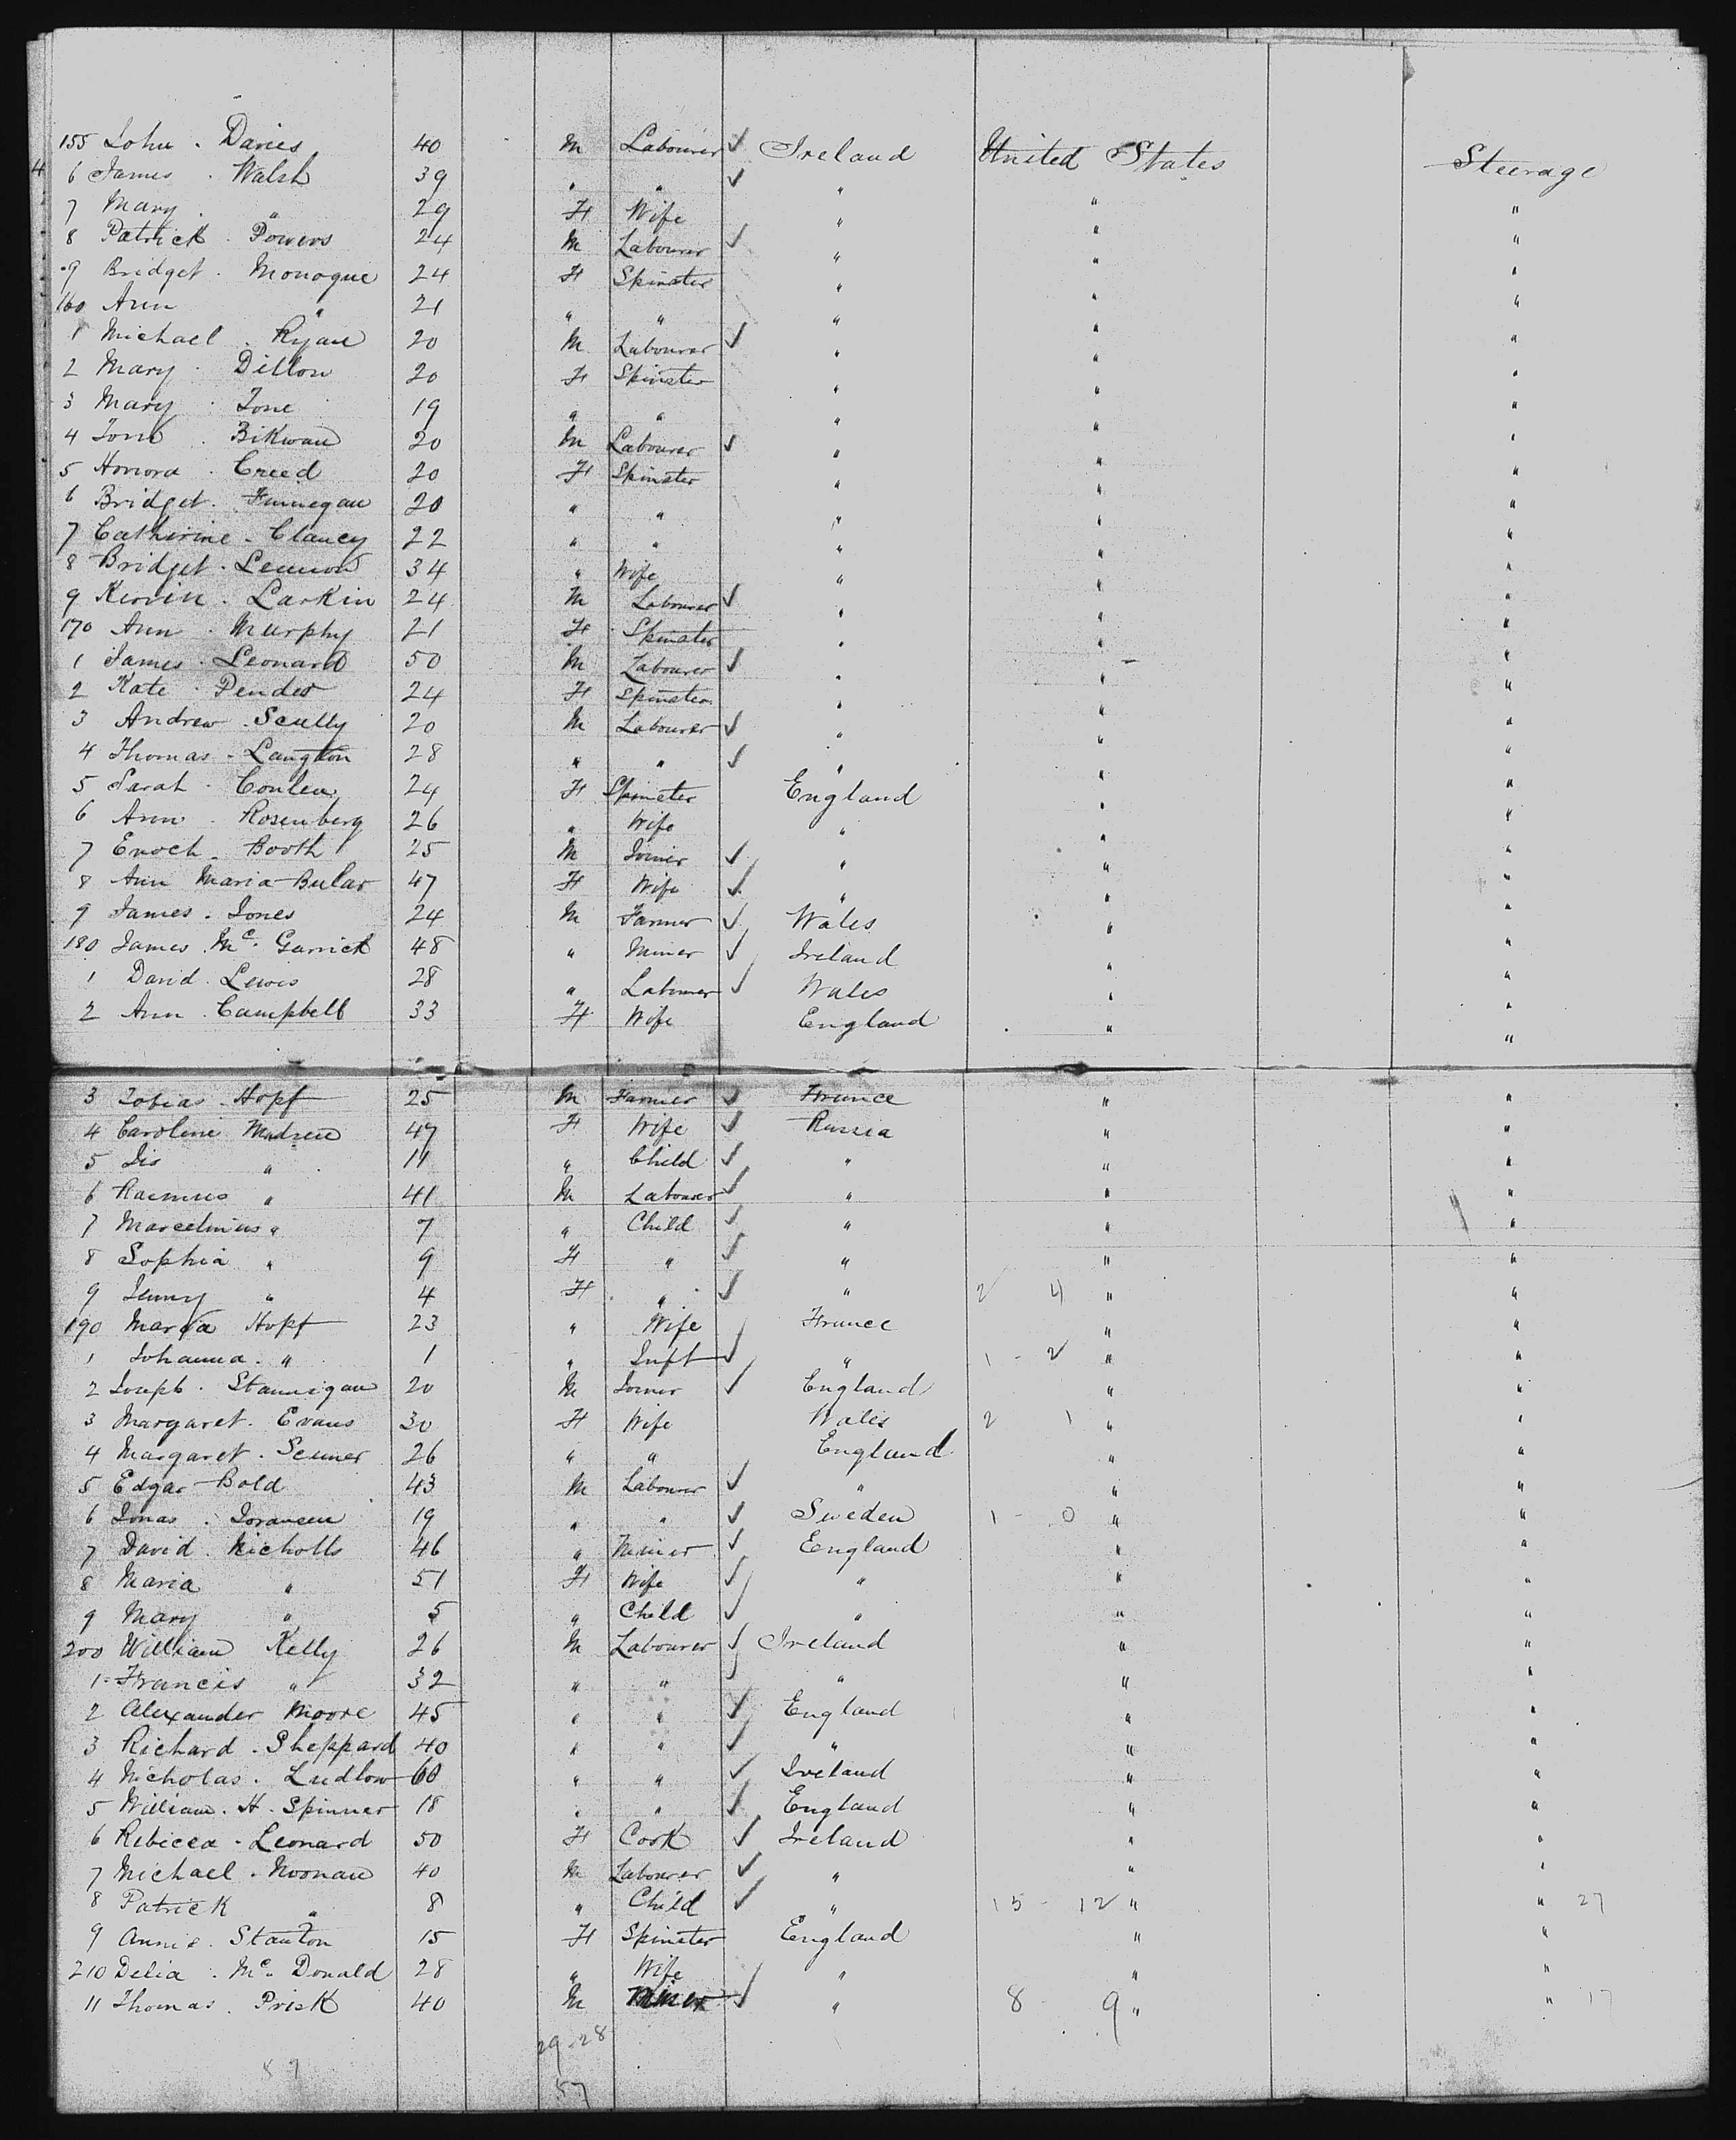 155 John . Davies 40 M Labourer ✓ Ireland United States Steerage
4 6 James . Walsh 39 " " ✓ " " "
7 Mary . " 29 F Wife " " "
8 Patrick . Powers 24 M Labourer ✓ " " "
9 Bridget . Monogue 24 F Spinster " " "
160 Ann " 21 " " " " "
1 Michael . Ryan 20 M Labourer ✓ " " "
2 Mary . Dillon 20 F Spinster " " "
3 Mary . Tone 19 " " " " "
4 20 M Labourer ✓ " " "
5 Honora . Creed 20 F Spinster " " "
6 Bridget . Finnegan 20 " " " " "
7 Catherine . Clancy 22 " " " " "
8 Bridget . Lennon 34 " Wife " " "
9 Kervin . Larkin 24 M Labourer ✓ " " "
170 Ann . Murphy 21 F Spinster " " "
1 James . Leonard 50 M Labourer ✓ " " "
2 Kate . Pender 24 F Spinster " " "
3 Andrew . Scully 20 M Labourer ✓ " " "
4 Thomas . Langton 28 " " ✓ " " "
5 Sarah . Conlen 24 F Spinster England " "
6 Ann . Rosenberg 26 " Wife " " "
7 Enoch . Booth 25 M Joiner ✓ " " "
8 Ann Maria 47 F Wife ✓ " " "
9 James . Jones 24 M Farmer ✓ Wales " "
180 James Mc. Garrick 48 " Miner ✓ Ireland " "
1 David . Lewis 28 " Labourer ✓ Wales " "
2 Ann . Campbell 33 F Wife England " "
3 Tobias . Hopf 25 M Farmer ✓ France " "
4 Caroline Madsen 47 F Wife ✓ Russia " "
5 " 11 " Child ✓ " " "
6 Rasmus " 41 M Labourer ✓ " " "
7 Marcelinius " 7 " Child ✓ " " "
8 Sophia " 9 F " ✓ " " "
9 Jenny " 4 F " ✓ " 2 4 " "
190 Maria Hopf 23 " Wife France " "
1 Johanna . " 1 " Inft ✓ " 1 - 2 " "
2 Joseph . Stannigan 20 M Joiner ✓ England " "
3 Margaret . Evans 30 F Wife Wales 2 1 " "
4 Margaret . 26 " " England " "
5 Edgar Bold 43 M Labourer ✓ " " "
6 Jonas . Joransen 19 " " ✓ Sweden 1 - 0 " "
7 David . Nicholls 46 " Miner ✓ England " "
8 Maria " 51 F Wife ✓ " " "
9 Mary " 5 " Child ✓ " " "
200 William Kelly 26 M Labourer ✓ Ireland " "
1 Francis " 32 " " ✓ " " "
2 Alexander Moore 45 " " ✓ England " "
3 Richard . Sheppard 40 " " ✓ " " "
4 Nicholas . Ludlow 60 " " ✓ Ireland " "
5 William . H . Spinner 18 " " ✓ England " "
6 Rebicca . Leonard 50 F Cook ✓ Ireland " "
7 Michael . Noonan 40 M Labourer ✓ " " "
8 Patrick " 8 " Child ✓ " 15 - 12 " " 27
9 Annie . Stanton 15 F Spinster England " "
210 Delia . Mc. Donald 28 " Wife " " "
11 Thomas . Prisk 40 M Miner ✓ " 8 - 9 " " 17
29 - 28
57